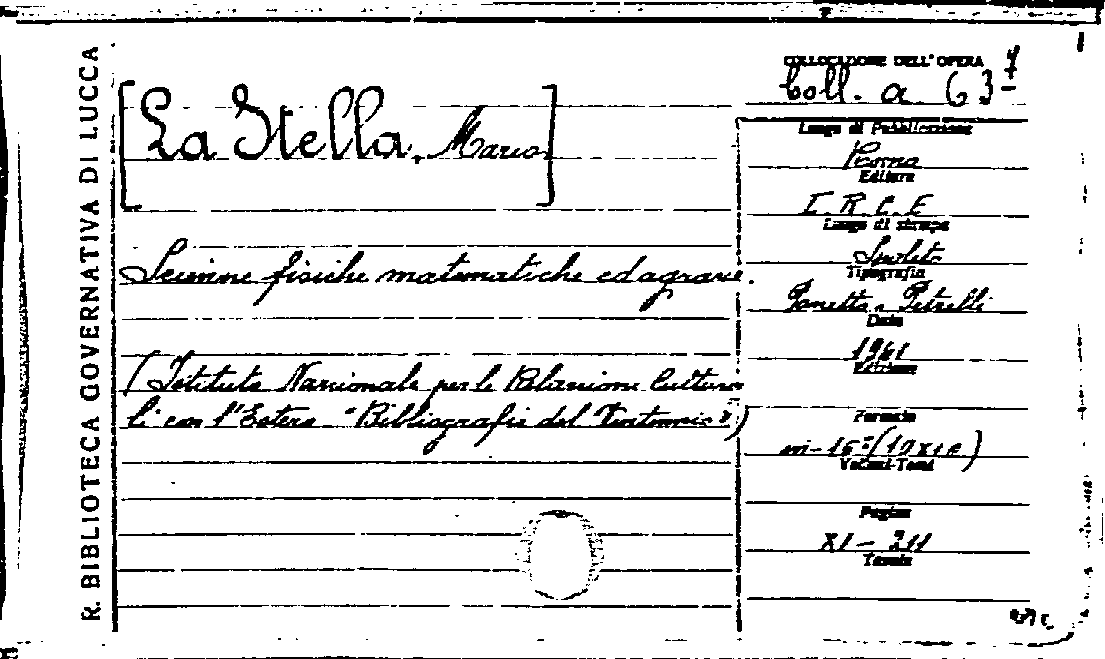 R. BIBLIOTECA GOVERNATIVA DI LUCCA
[La Stella, Mario]
Scienze fisiche matematiche ed agrarie.
(Istituto Nazionale per le Relazioni Cultura
li con l'Estero - "Bibliografie del Ventennio")
COLLOCAZIONE DELL'OPERA
Coll. a. 63-7
Luogo di Pubblicazione
Roma
Editore
I. R. C. E
Luogo di stampa
Spoleto
Tipografia
Panetto e Petrelli
Data
1941
Edizione
Formato
in-16º (19x12)
Volumi-Tomi
Pagine
XI - 211
Tavole